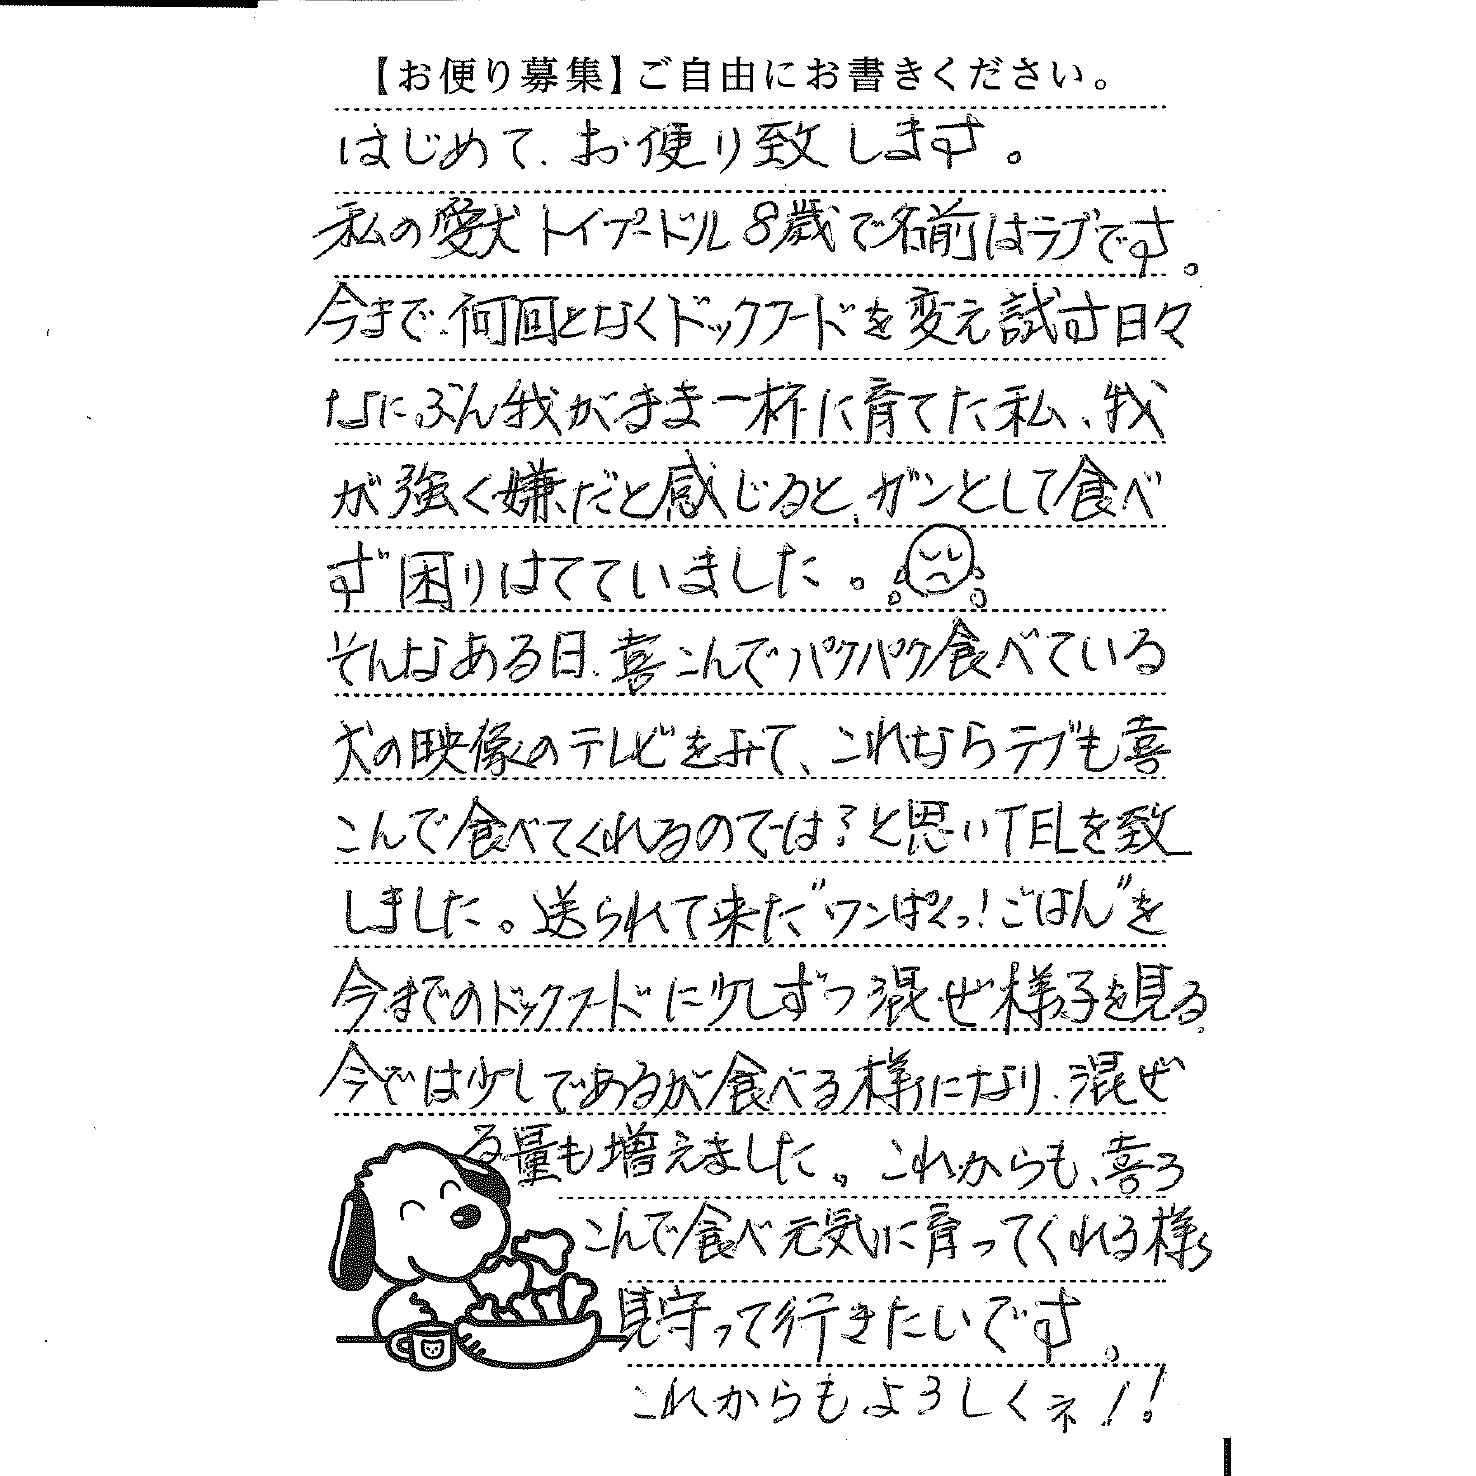 【お便り募集】ご自由にお書きください。
はじめて、お便り致します。
私の愛犬トイプードル8歳で名前はラブです。
今まで、何回となくドックフードを変え試す日々
なにぶん我がまま一杯に育てた私、我
が強く嫌だと感じると、ガンとして食べ
ず困りはてていました。
そんなある日、喜こんでパクパク食べている
犬の映像のテレビをみて、これならラブも喜
こんで食べてくれるのでは?と思いTELを致
しました。送られて来た"ワンぱくっ!ごはん"を
今までのドックフードに少しずつ混ぜ様子を見る
今では少しであるが食べる様になり、混ぜ
る量も増えました。これからも、喜ろ
こんで食べ元気に育ってくれる様
見守って行きたいです。
これからもよろしくネ!!